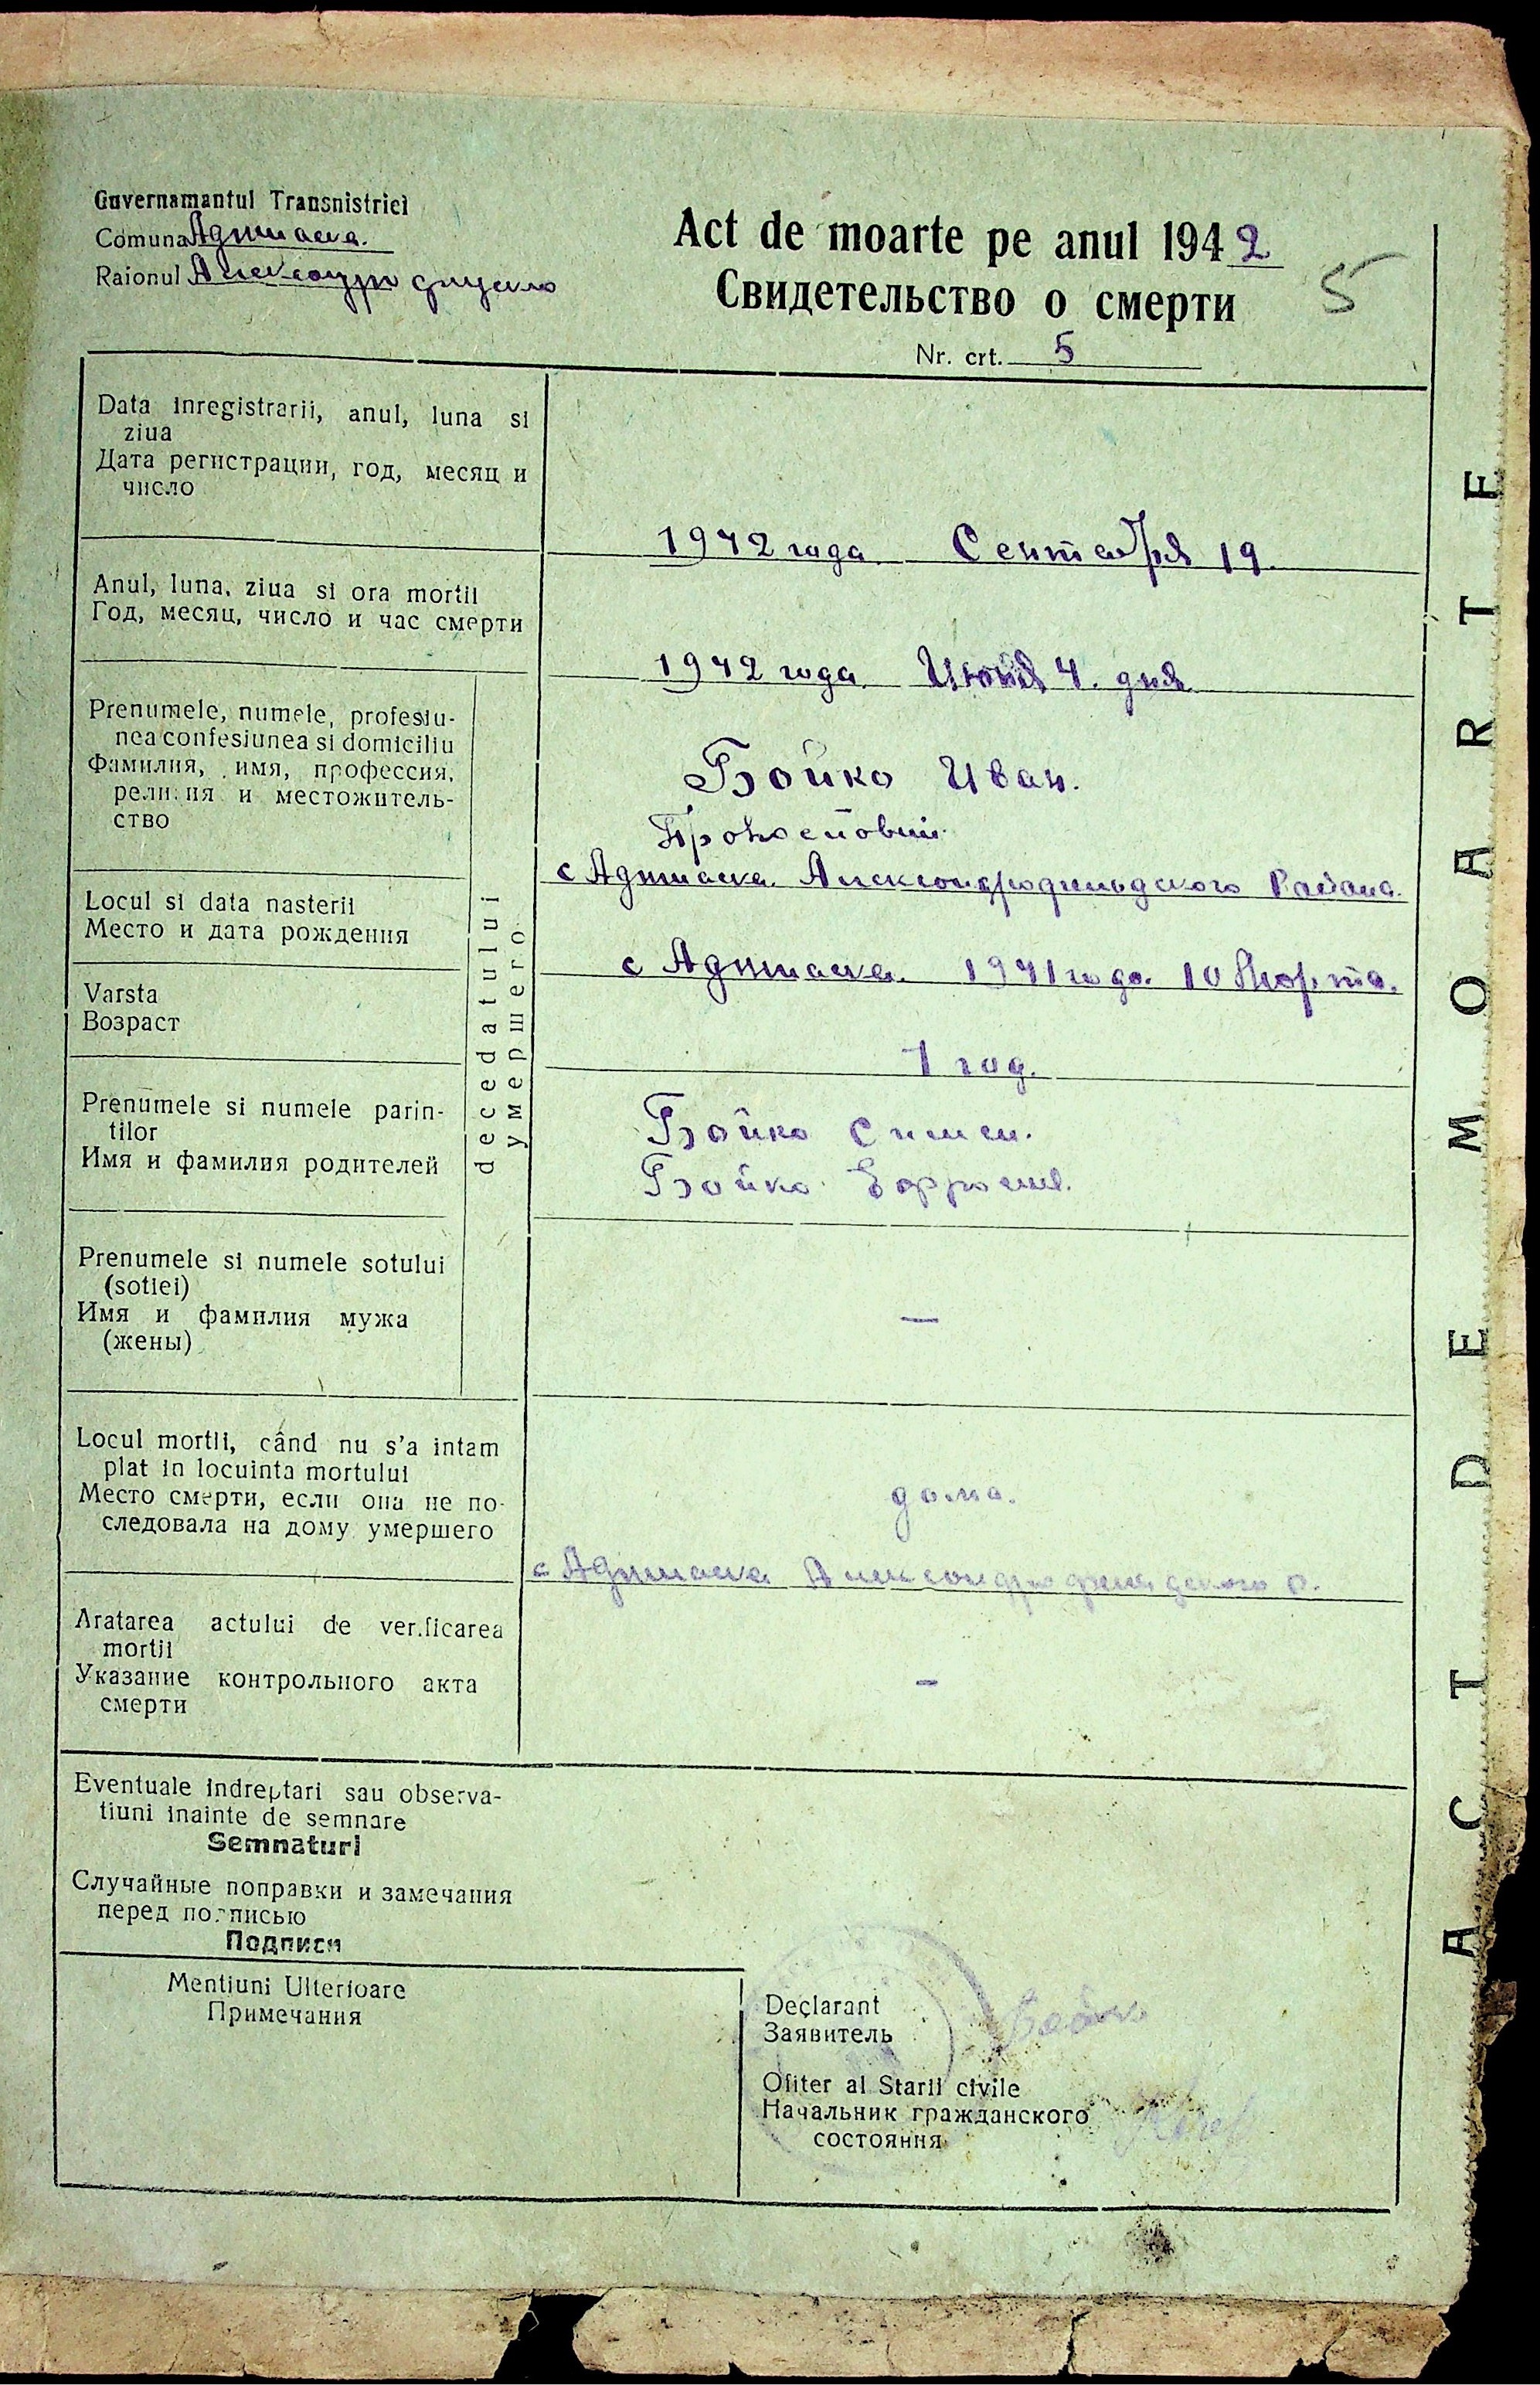 Guvernamantul Transnistriei
Comuna Аджиаска.
Raionul Александрофильдсько
Act de moarte pe anul 1942
Свидетельство о смерти
5
Nr. crt. 5
Data inregistrarii, anul, luna si
ziua
Дата регистрации, год, месяц и
число
1942 года Сентября 19.
Anul, luna, ziua si ora mortii
Год, месяц, число и час смерти
1942 года 4. дня
Prenumele, numele, profesiu-
nea confesiunea si domiciliu
Фамилия, имя, профессия,
религия и местожитель-
ство
Бойко Иван.
с Аджиаска. Александрофильдского Района.
Locul si data nasterii
Место и дата рождения
с Аджиаска. 1941 года. 10 Марта.
Varsta
Возраст
1 год.
decedatului
умершего
Prenumele si numele parin-
tilor
Имя и фамилия родителей
Бойко Симен.
Бойко Ефросия.
Prenumele si numele sotului
(sotiei)
Имя и фамилия мужа
(жены)
—
Locul mortii, când nu s'a intam
plat in locuinta mortului
Место смерти, если она не по-
следовала на дому умершего
дома.
с Аджиаска Александрофильдского р.
Aratarea actului de verificarea
mortii
Указание контрольного акта
смерти
–
Eventuale indreptari sau observa-
tiuni inainte de semnare
Semnaturi
Случайные поправки и замечания
перед подписью
Подписи
Mentiuni Ulterioare
Примечания
Declarant
Заявитель
Бойко
Ofiter al Starii civile
Начальник гражданского
состояния
ACT DE MOARTE